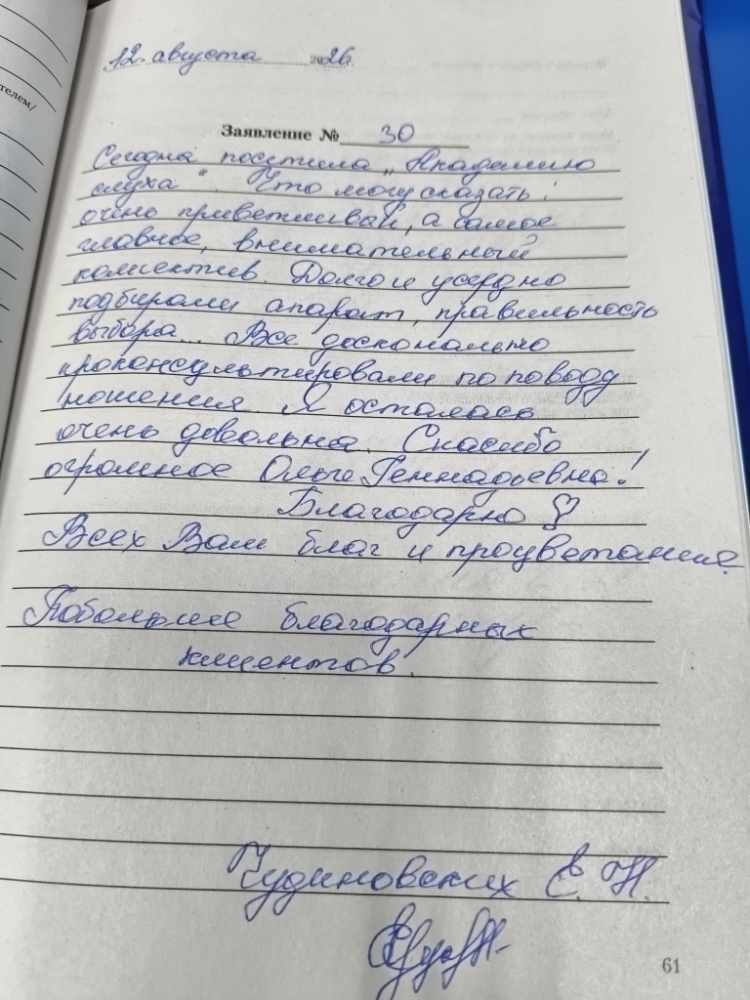 телем/
12. августа 2026
Заявление № 30
Сегодня посетила „Академию
слуха". Что могу сказать:
очень приветливый, а самое
главное, внимательный
коллектив. Долго и усердно
подбирали апарат, правильность
выбора... Все досконально
проконсультировали по поводу
ношения. Я осталась
очень довольна. Спасибо
огромное Ольге Геннадьевне!
Благодарю
Всех Вам благ и процветание.
Побольше благодарных
клиентов.
Чудиновских Е. Н.
61